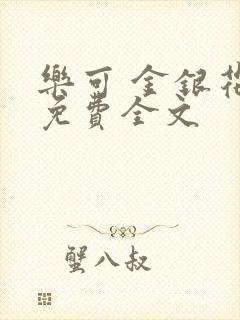 樂可 金銀花
免費全文
蟹八叔